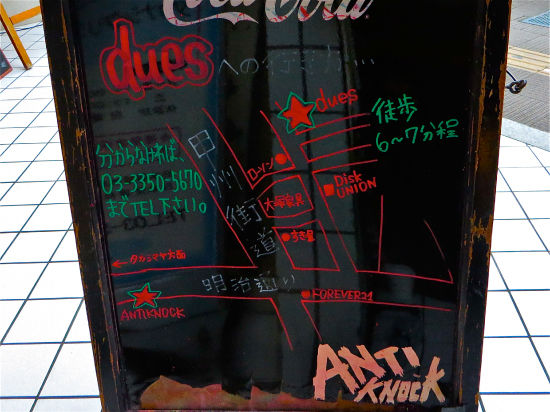 Coca-Cola
dues
への行き方...
dues
徒歩
6~7分程
分からなければ、
03-3350-5670
までTEL下さい。
甲
州
街
道
ローソン
大塚家具
Disk
UNION
すき屋
←タカシマヤ方面
明治通り
ANTIKNOCK
FOREVER21
ANTI
KNOCK